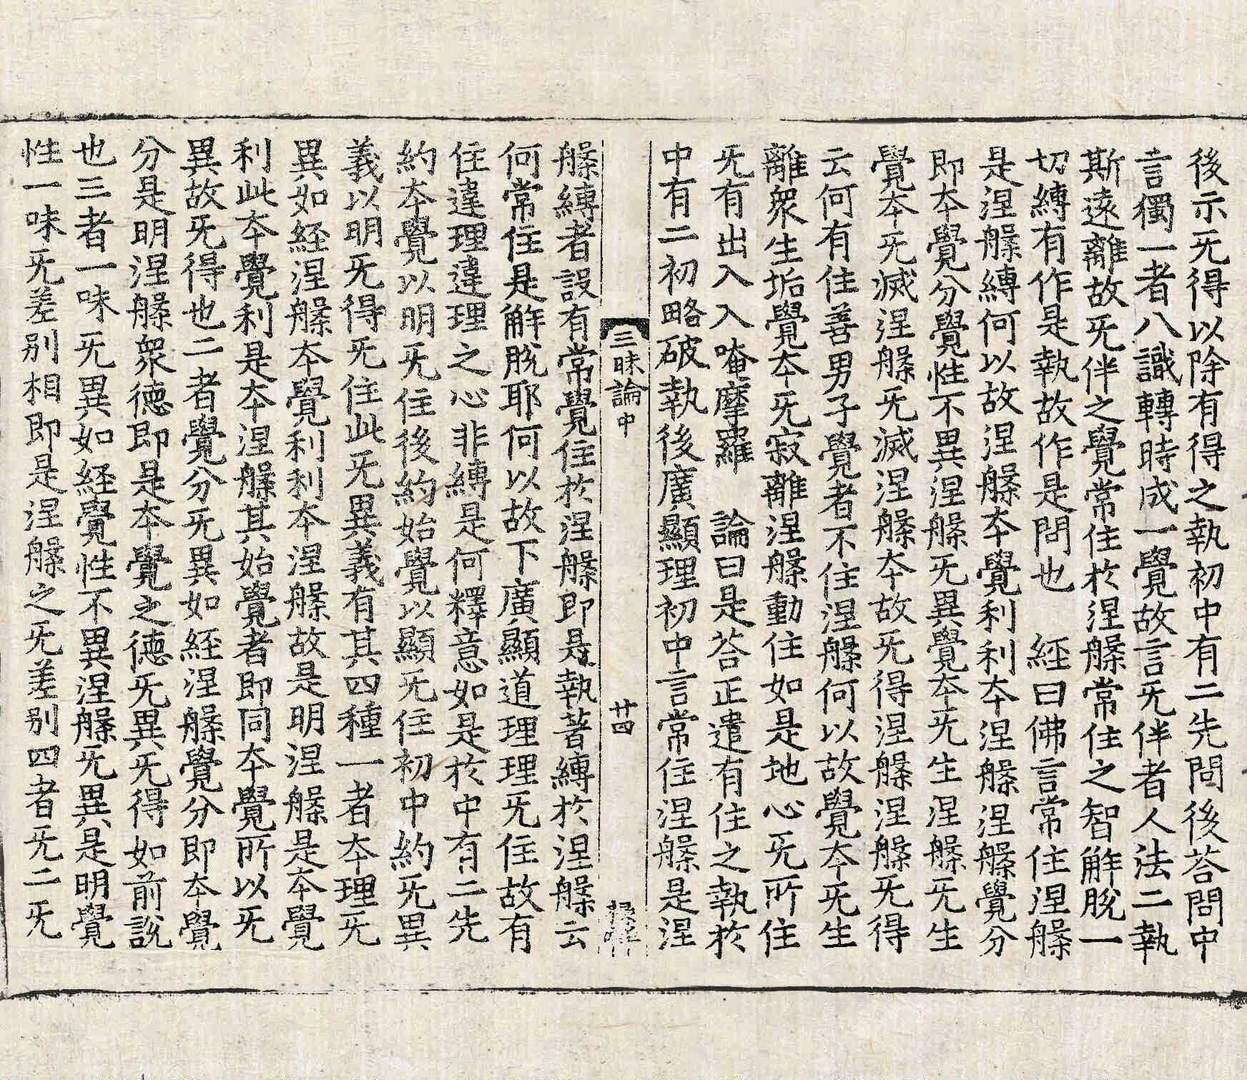 後示旡得以除有得之執初中有二先問後荅問中
言獨一者八識轉時成一覺故言旡伴者人法二執
斯遠離故旡伴之覺常住於涅槃常住之智解脫一
切縛有作是執故作是問也　經曰佛言常住涅槃
是涅槃縛何以故涅槃夲覺利利夲涅槃涅槃覺分
即夲覺分覺性不異涅槃旡異覺夲旡生涅槃旡生
覺夲旡滅涅槃旡滅涅槃夲故旡得涅槃涅槃旡得
云何有住善男子覺者不住涅槃何以故覺夲旡生
離衆生垢覺夲旡寂離涅槃動住如是地心旡所住
旡有出入入唵摩羅　論曰是荅正遣有住之執於
中有二初略破執後廣顯理初中言常住涅槃是涅
三昧論中
廿四
槃縛者設有常覺住於涅槃即是執著縛於涅槃云
何常住是解脫耶何以故下廣顯道理理旡住故有
住違理違理之心非縛是何釋意如是於中有二先
約夲覺以明旡住後約始覺以顯旡住初中約旡異
義以明旡得旡住此旡異義有其四種一者夲理旡
異如経涅槃夲覺利利夲涅槃故是明涅槃是夲覺
利此夲覺利是夲涅槃其始覺者即同夲覺所以旡
異故旡得也二者覺分旡異如経涅槃覺分即夲覺
分是明涅槃衆德即是夲覺之德旡異旡得如前說
也三者一味旡異如経覺性不異涅槃旡異是明覺
性一味旡差别相即是涅槃之旡差别四者旡二旡